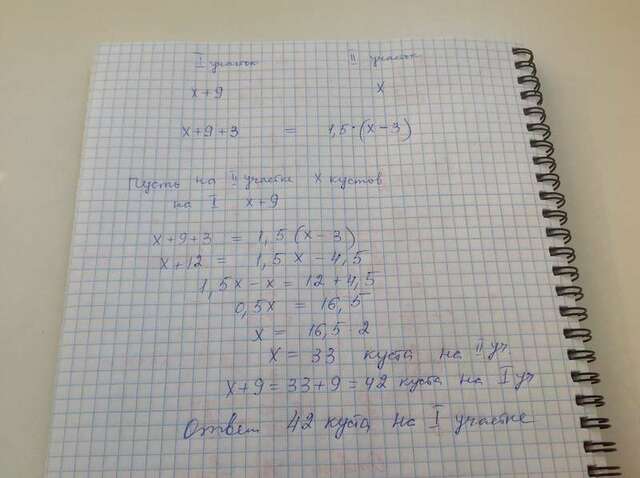 I участок II участок
x+9 x
x+9+3 = 1,5·(x-3)
Пусть на II участке x кустов
на I x+9
x+9+3 = 1,5(x-3)
x+12 = 1,5x-4,5
1,5x-x = 12+4,5
0,5x = 16,5
x = 16,5 2
x = 33 куста на II уч.
x+9 = 33+9 = 42 куста на I уч
Ответ 42 куста на I участке